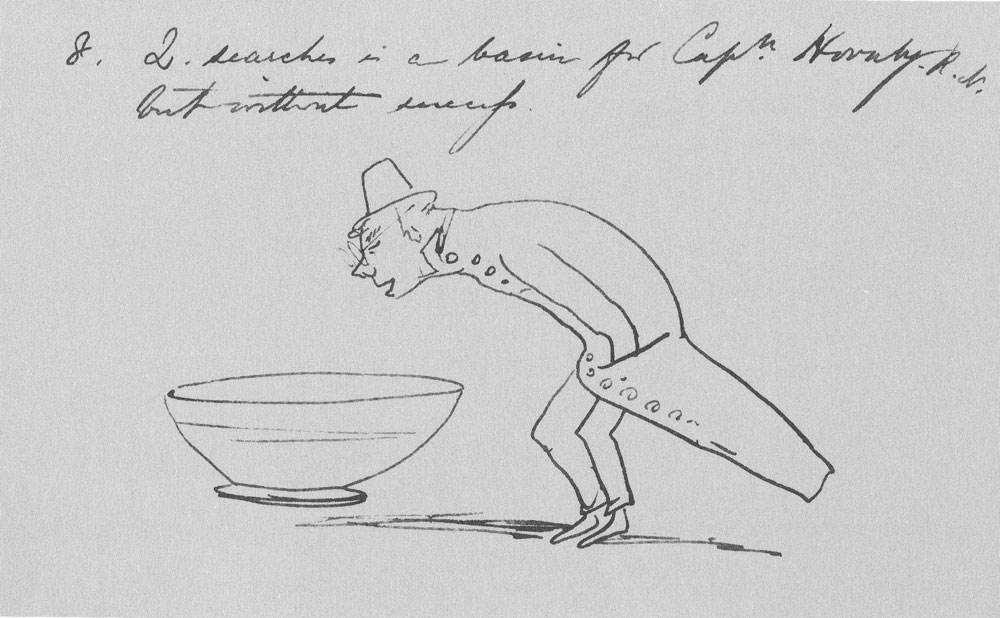 8. Q. searches in a basin for Captn Hornby. R. N.
but without success.